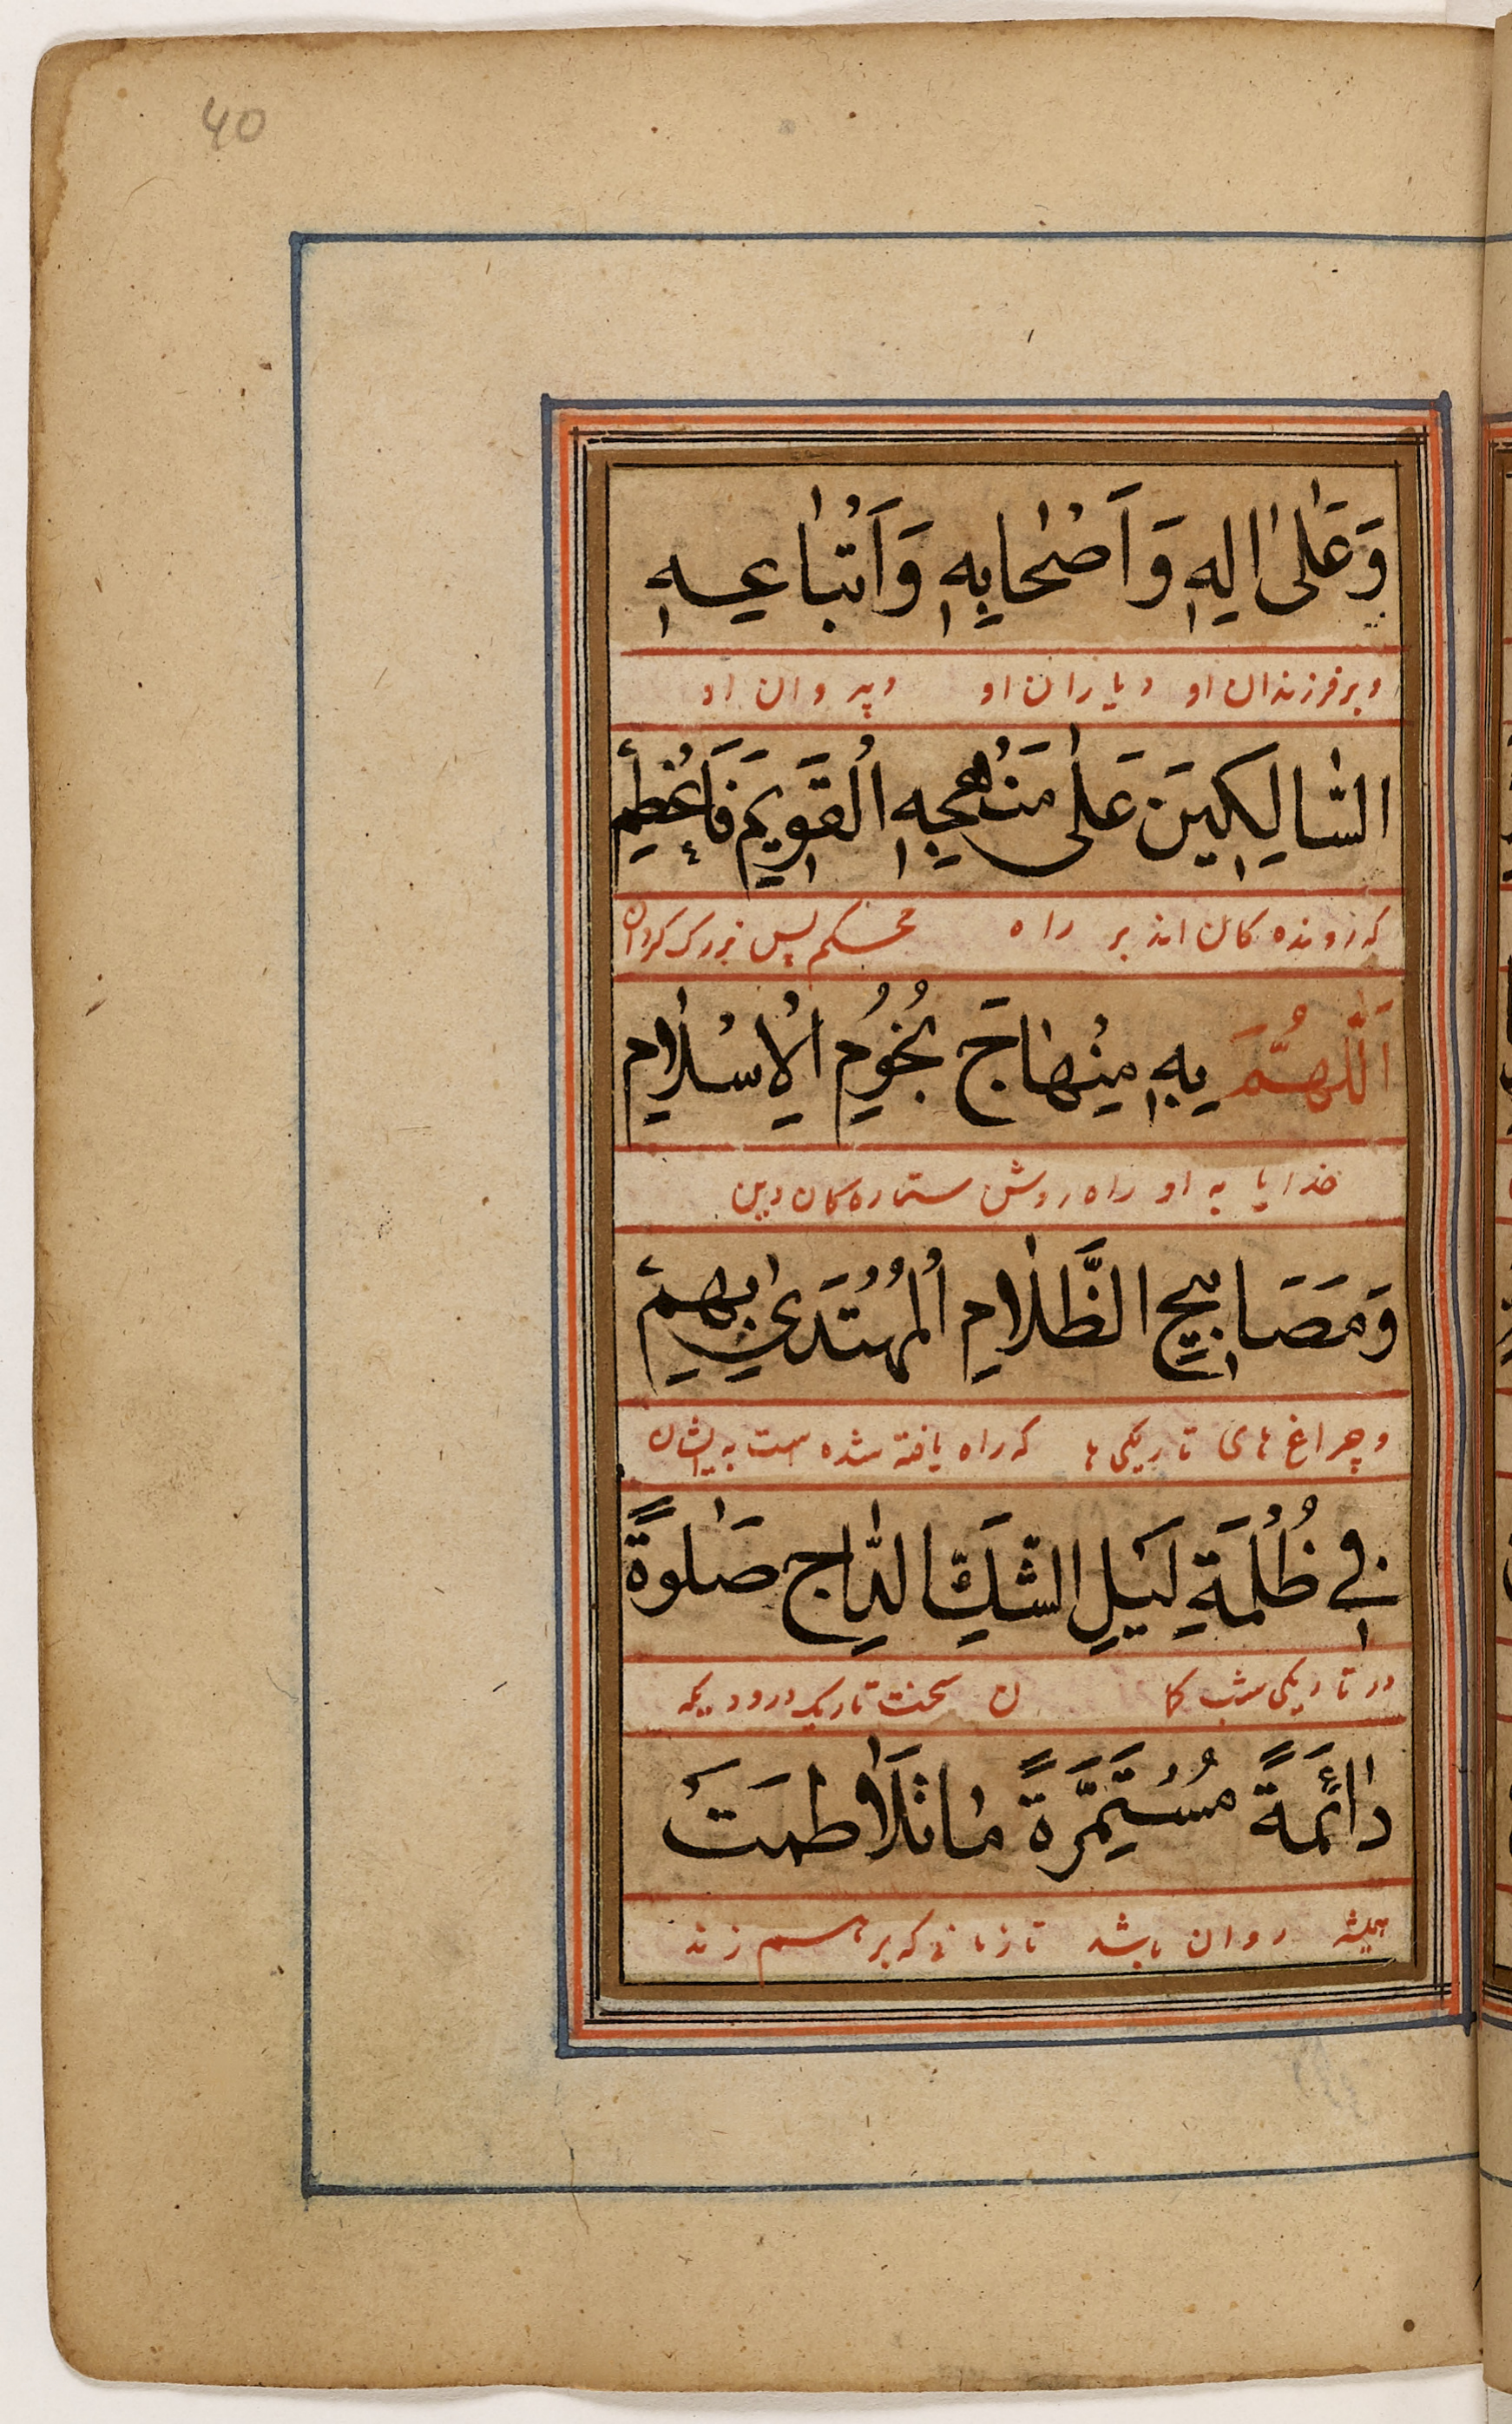 40
وَعَلٰى اٰلِهٖ وَاَصْحَابِهٖ وَاَتْبَاعِهٖ
و بر فرزندان او و یاران او و پیروان او
السَّالِكِينَ عَلٰى مَنْهَجِهِ الْقَوِيمِ فَاَعْظِمْ
که رونده کان اند بر راه محکم پس بزرک کردان
اَللّٰهُمَّ بِهٖ مِنْهَاجَ نُجُومِ الْاِسْلَامِ
خدایا به او راه روشن ستاره کان دین
وَمَصَابِيحِ الظَّلَامِ الْمُهْتَدٰى بِهِمْ
و چراغ های تاریکی ها که راه یافته شده است به ایشان
فِي ظُلْمَةِ لَيْلِ الشَّكِّ الدَّاجِ صَلٰوةً
در تاریکی شب کا ن سخت تاریک درودیکه
دَائِمَةً مُسْتَمِرَّةً مَا تَلَاطَمَتْ
همیشه روان باشد تا زمانی که بر هم زند